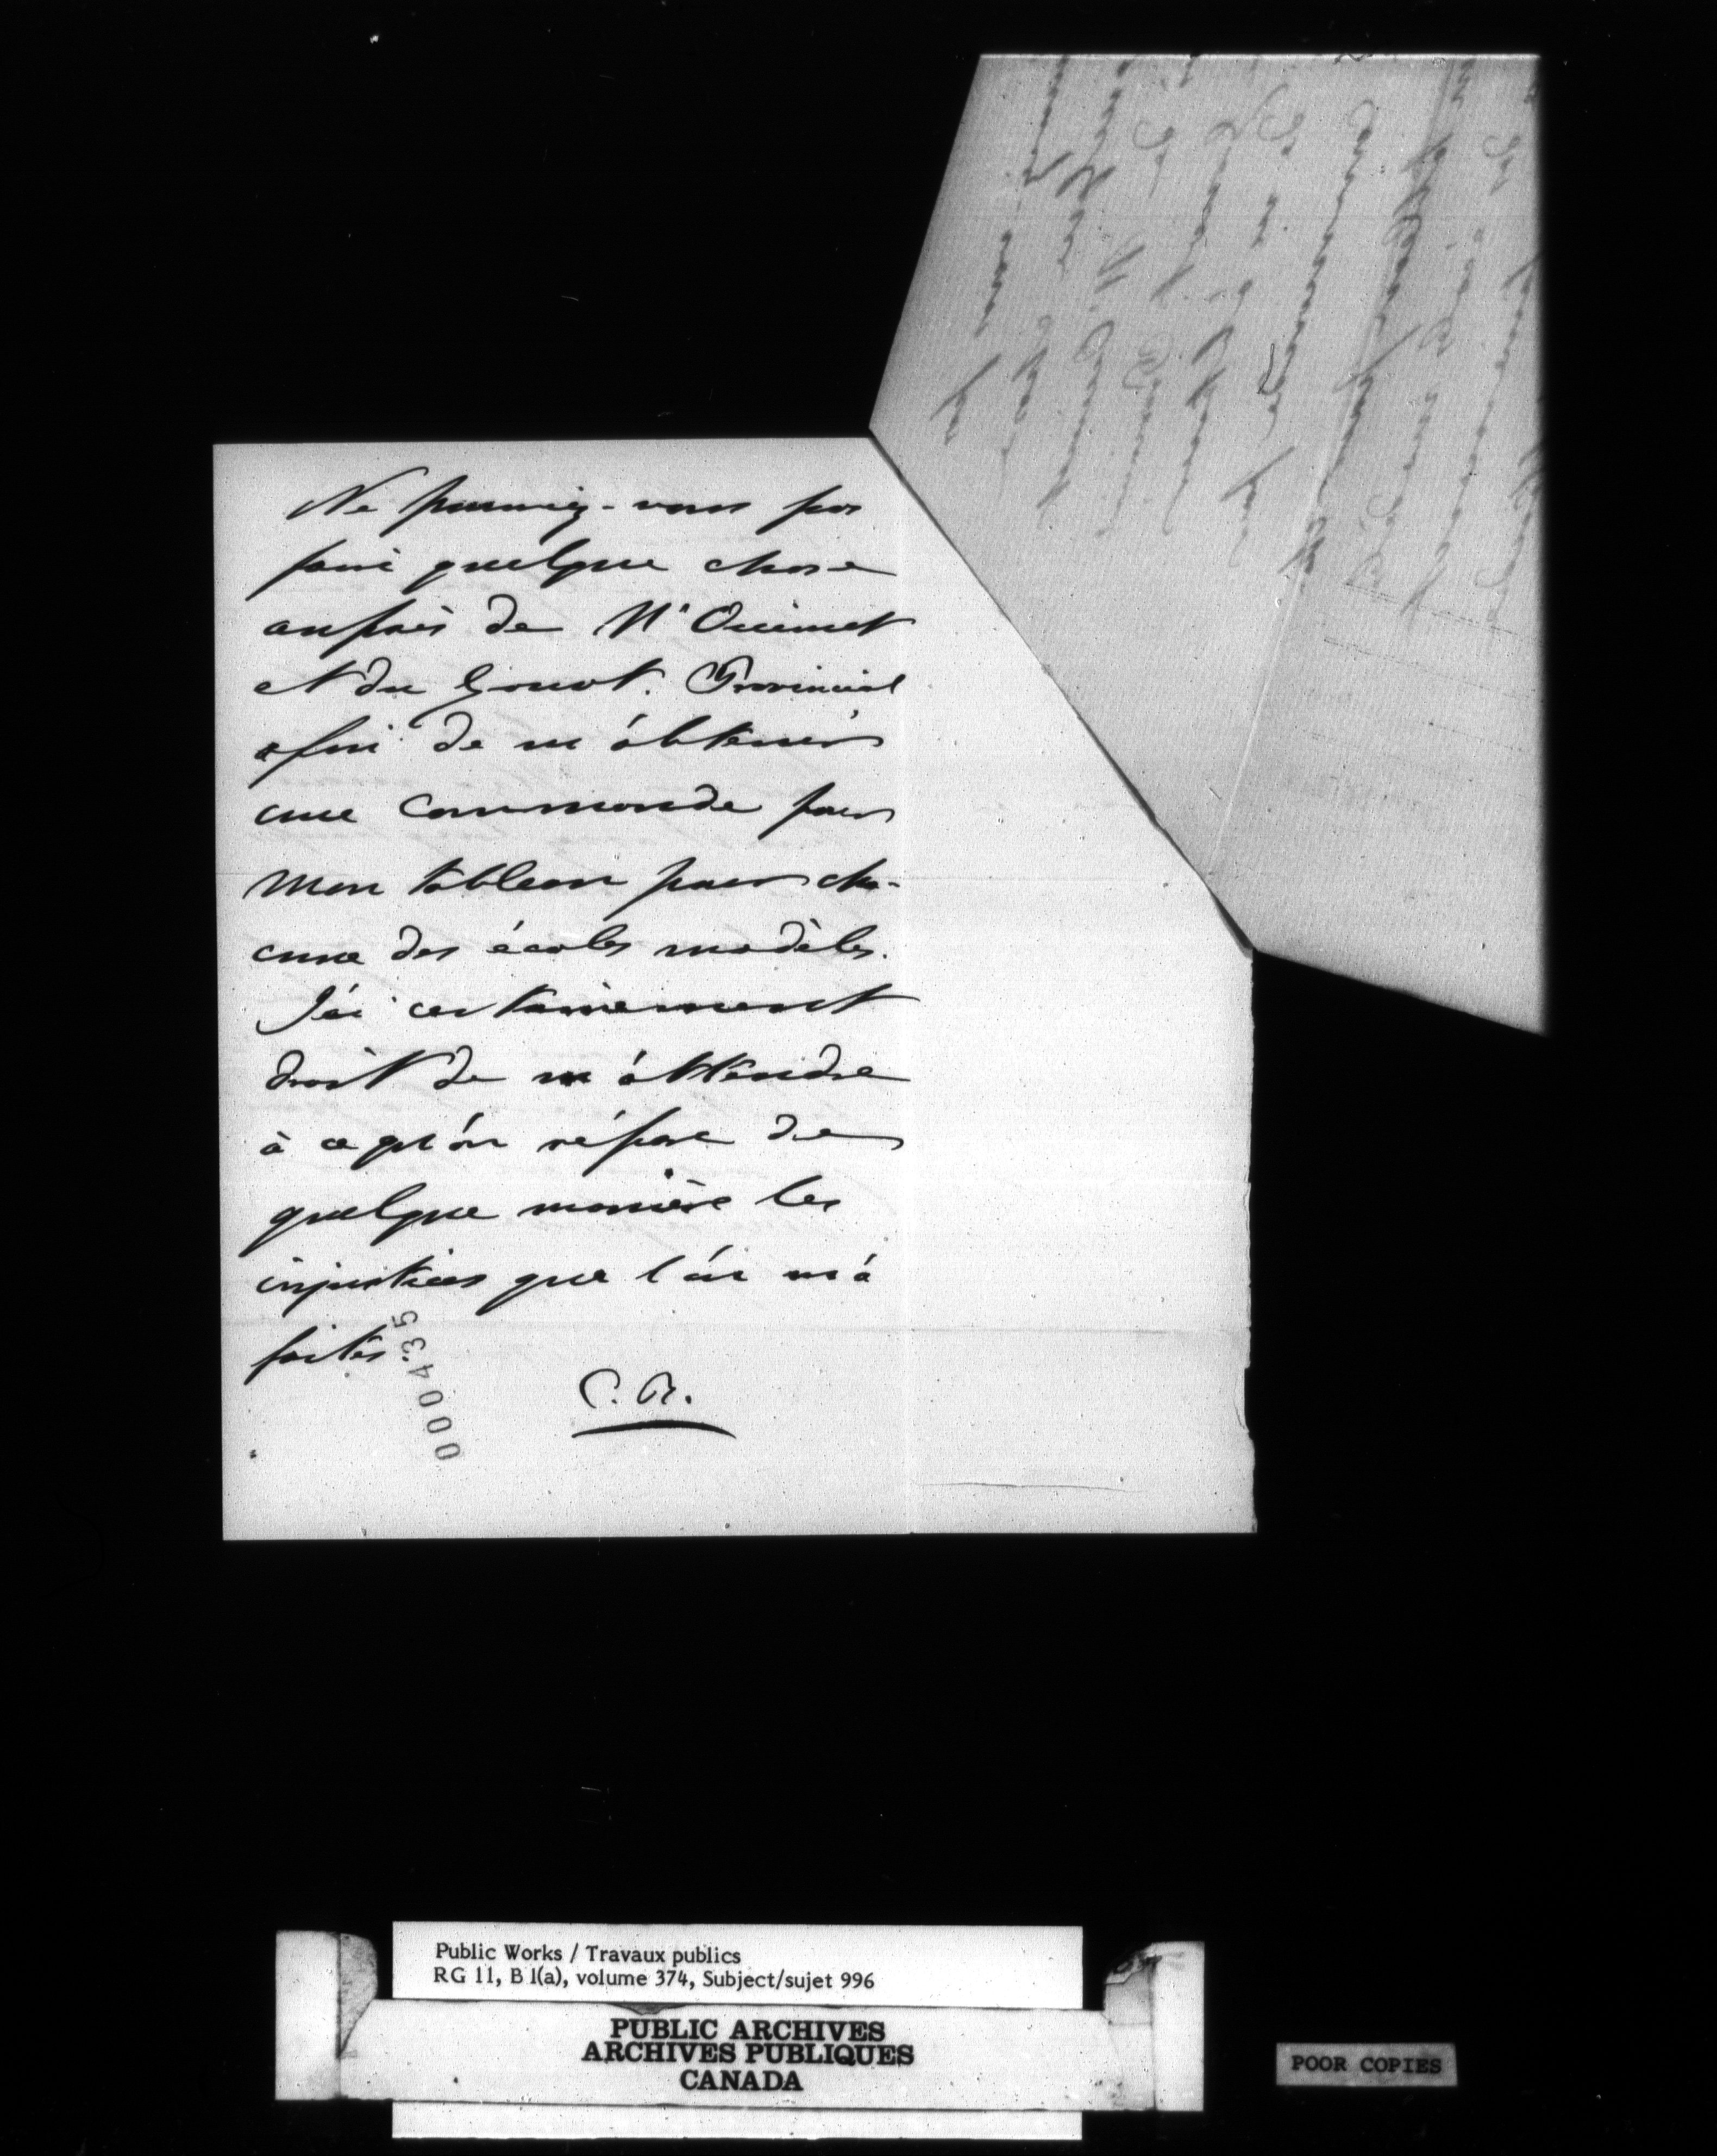 Ne pourriez-vous pas
faire quelque chose
auprès de Mr Ouimet
et du Gouvt. Provincial
afin de m'obtenir
une commande pour
mon tableau pour cha-
cune des écoles modèles.
J'ai certainement
droit de m'attendre
à ce qu'on répare de
quelque manière les
injustices que l'on m'a
faites.
C. B.
000435
Public Works / Travaux publics
RG 11, B 1(a), volume 374, Subject/sujet 996
PUBLIC ARCHIVES
ARCHIVES PUBLIQUES
CANADA
POOR COPIES